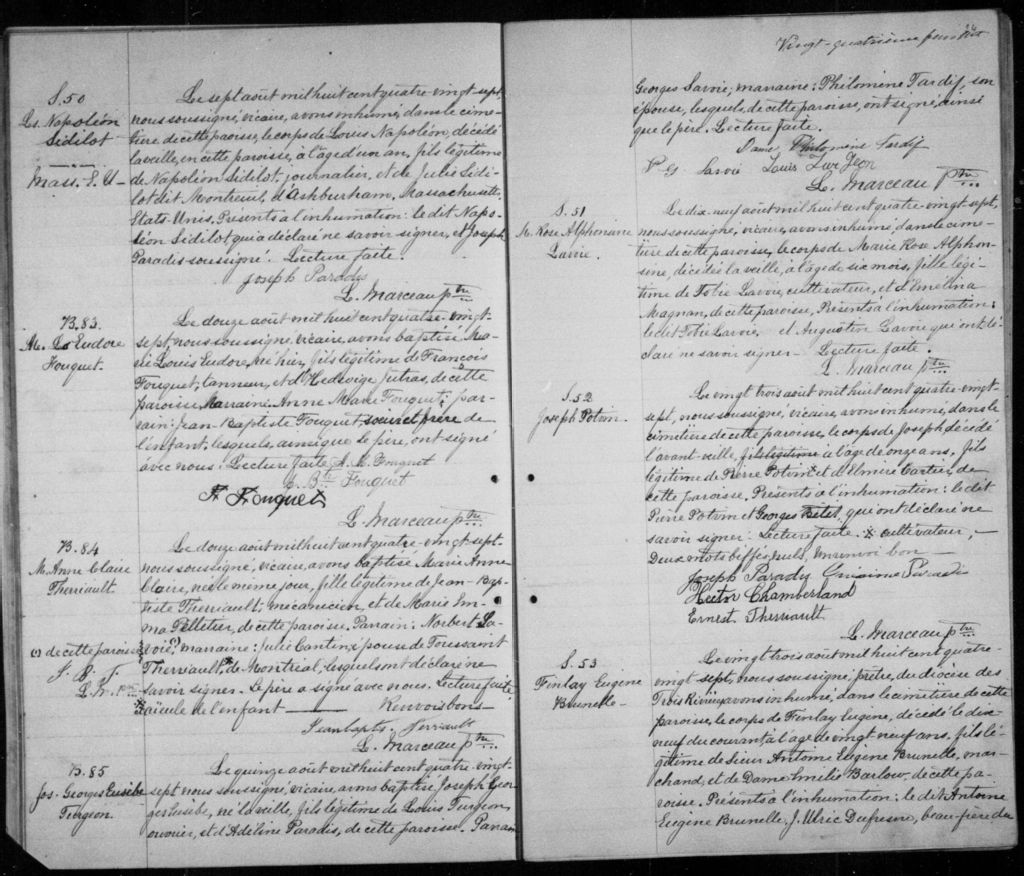 S. 50
Ls. Napoléon
Sidilot
Mass. E. U.
Le sept août mil huit cent quatre-vingt sept,
nous soussigné, vicaire, avons inhumé, dans le cime-
tière de cette paoisse, le corps de Louis Napoléon, décédé
la veille, en cette paroisse, à l'âge d'un an, fils légitime
de Napoléon Sidilot, journalier, et de Julie Sidi-
lot dit Montreuil, d'Ashburham, Massachusetts,
Etats Unis. Présents à l'inhumation: le dit Napo-
léon Sidilot qui a déclaré ne savoir signer, et Joseph
Paradis soussigné. Lecture faite.
Joseph Paradis
L. Marceau ptre
B. 83.
M. Ls Eudore
Fouquet.
Le douze août mil huit cent quatre-vingt-
sept, nous soussigné, vicaire, avons baptisé Ma-
rie Louis Eudore, né hier, fils légitime de François
Fouquet, tanneur, et d'Hedwige Jutras, de cette
paroisse, Marraine: Anne Marie Fouquet; par-
rain: Jean-Baptiste Fouquet, soeur et frère de
l'enfant, lesquels, ainsi que le père, ont signé
avec nous. Lecture faite. A. M. Fouquet
J. Bte Fouquet
F. Fouquet
L. Marceau ptre
B. 84
M. Anne Claire
Therriault.
Le douze août mil huit cent quatre-vingt-sept
nous soussigné, vicaire, avons baptisé Marie Anne
Claire, née le même jour, fille légitime de Jean-Bap-
tiste Therriault, mécanicien, et de Marie Em-
ma Pelletier, de cette paroisse. Parrain: Norbert La-
voie; marraine: Julie Cantin, épouse de Toussaint
Therriault, de Montréal, lesquels ont déclaré ne
savoir signer. Le père a signé avec nous. Lecture faite.
aïeule de l'enfant — Renvois bons
(1) de cette paroisse
J. B. T.
L. M. Ptre
Jean bapte. Terriault
L. Marceau ptre
B. 85
Jos. Georges Eusèbe
Turgeon.
Le quinze août mil huit cent quatre-vingt-
sept nous soussigné, vicaire, avons baptisé Joseph Geor-
ges Eusèbe, né la veille, fils légitime de Louis Turgeon,
ouvrier, et d'Adéline Paradis, de cette paroisse. Parrain
Vingt-quatrième feuillet
24
Georges Savoie, marraine: Philomène Tardif, son
épouse, lesquels de cette paroisse, ont signé, ainsi
que le père. Lecture faite.
Dame Philomène Tardif
P. G. Savoie Louis
L. Marceau ptre
S. 51
M. Rose Alphonsine
Lavoie.
Le dix-neuf août mil huit cent quatre-vingt sept,
nous soussigné, vicaire, avons inhumé, dans le cime-
tière de cette paroisse, le corps de Marie Rose Alphon-
sine, décédée la veille, à l'âge de six mois, fille légi-
time de Tobie Lavoie, cultivateur, et d'Emelina
Magnan, de cette paroisse. Présents à l'inhumation:
le dit Tobie Lavoie, et Augustin Lavoie qui ont dé-
claré ne savoir signer. Lecture faite.
L. Marceau ptre
S. 52
Joseph Potvin.
Le vingt trois août mil huit cent quatre-vingt-
sept, nous soussigné, vicaire, avons inhumé, dans le
cimetière de cette paroisse, le corps de Joseph décédé
l'avant veille, fils légitime à l'âge de onze ans, fils
légitime de Pierre Potvin x et d'Elmire Cartier, de
cette paroisse. Présents à l'inhumation: le dit
Pierre Potvin et Georges qui ont déclaré ne
savoir signer. Lecture faite. x cultivateur, —
Deux mots biffés, nuls, un renvoi bon —
Joseph Paradis
Hector Chamberland
Ernest Therriault
L. Marceau ptre
S. 53
Finlay Eugène
Brunelle
Le vingt trois août mil huit cent quatre-
vingt sept, nous soussigné, prêtre, du diocèse des
Trois Rivières avons inhumé, dans le cimetière de cette
paroisse, le corps de Finlay Eugène, décédé le dix-
neuf du courant, à l'âge de vingt neuf ans, fils lé-
gitime de sieur Antoine Eugène Brunelle, mar-
chand, et de Dame Emélie Barlow, de cette pa-
roisse. Présents à l'inhumation: le dit Antoine
Eugène Brunelle, J. Ulric Dufresne, beau-frère du